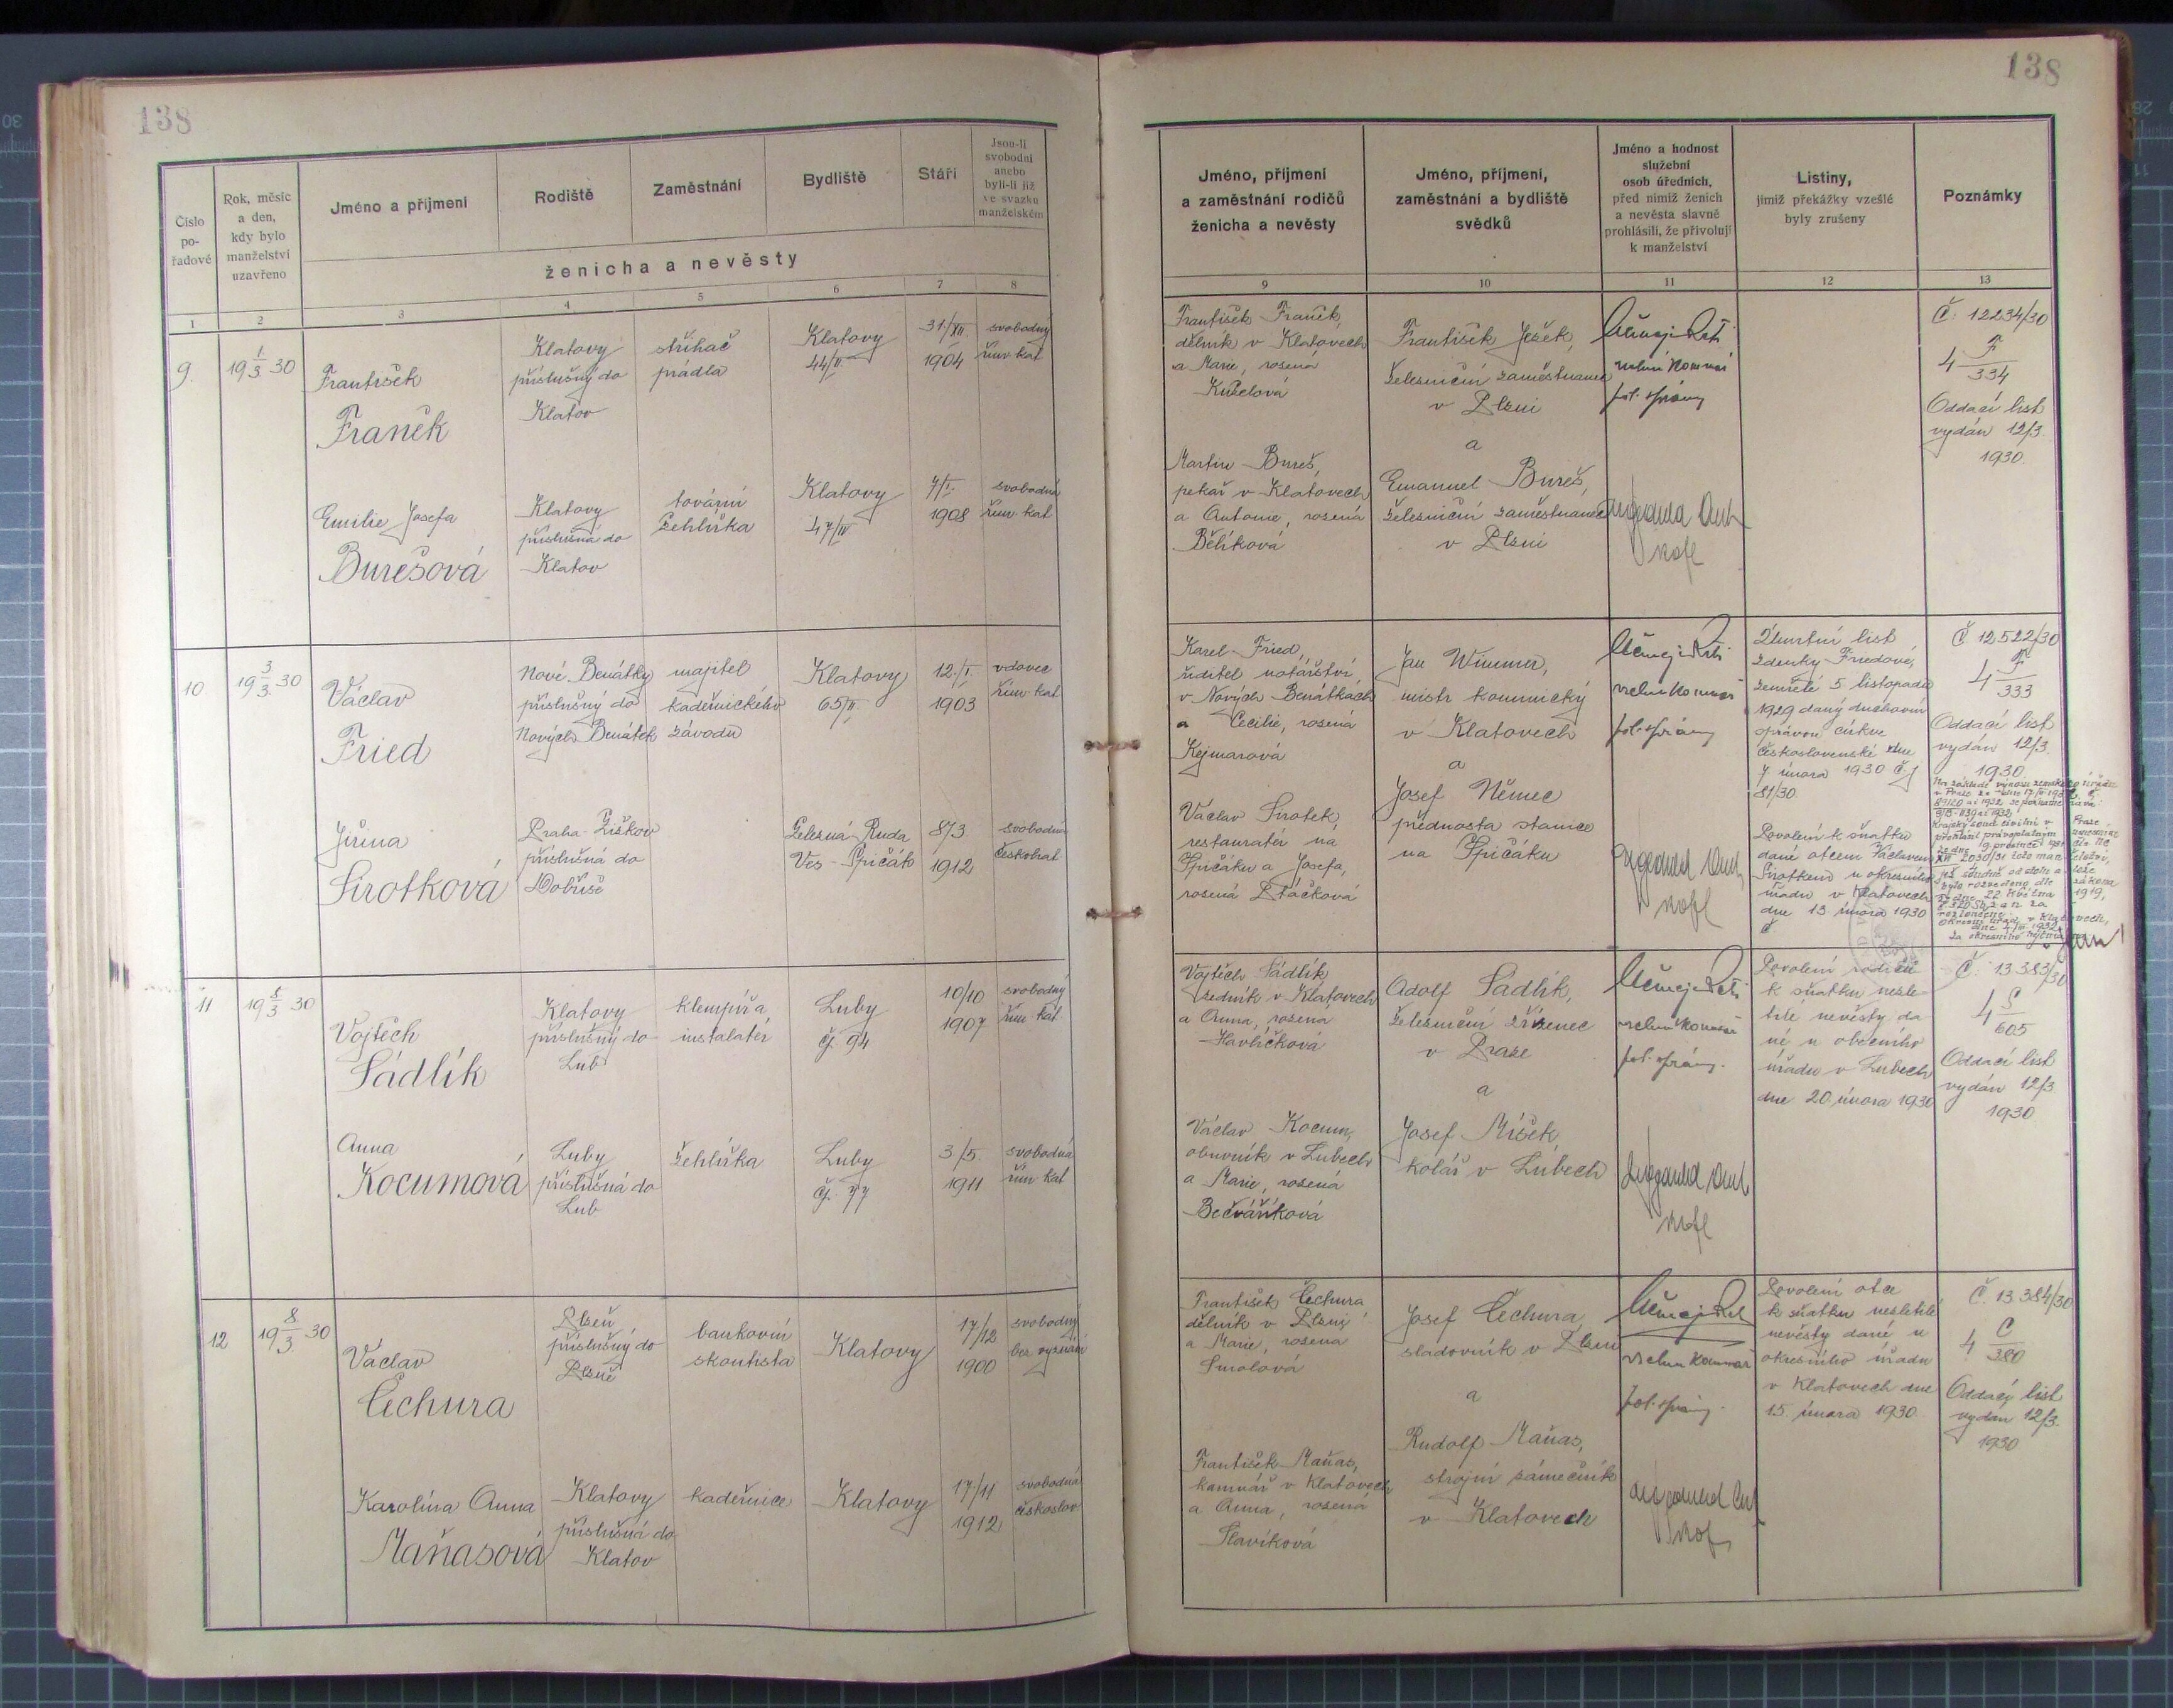 138
138
Číslo pořadové
Rok, měsíc a den, kdy bylo manželství uzavřeno
Jméno a příjmení
Rodiště
Zaměstnání
Bydliště
Stáří
Jsou-li svobodni anebo byli-li již ve svazku manželském
ženicha a nevěsty
1 2 3 4 5 6 7 8
Jméno, příjmení a zaměstnání rodičů ženicha a nevěsty
Jméno, příjmení, zaměstnání a bydliště svědků
Jméno a hodnost služební osob úředních, před nimiž ženich a nevěsta slavně prohlásili, že přivolují k manželství
Listiny, jimiž překážky vzešlé byly zrušeny
Poznámky
9 10 11 12 13
9.
19 1/3. 30
František
Franěk
Klatovy
příslušný do
Klatov
střihač
prádla
Klatovy
44/II.
31/XII.
1904
svobodný
řím. kat
Emilie Josefa
Burešová
Klatovy
příslušná do
Klatov
tovární
žehlířka
Klatovy
47/IV
7/I.
1908
svobodná
řím. kat
František Franěk,
dělník v Klatovech
a Marie, rosená
Kuželová
Martin Bureš,
pekař v Klatovech
a Antonie, rosená
Bělíková
František Ježek,
železniční zaměstnanec
v Plzni
a
Emanuel Bureš,
železniční zaměstnanec
v Plzni
pol. správy
Č. 12234/30
4 F/334
Oddací list
vydán 12/3.
1930.
10
19 3/3. 30
Václav
Fried
Nové Benátky
příslušný do
Nových Benátek
majitel
kadeřnického
závodu
Klatovy
65/II.
12./I.
1903
vdovec
řím. kat
Jiřina
Sirotková
Praha-Žižkov
příslušná do
Dobříše
Železná Ruda
Ves-Špičák
8/3.
1912
svobodná
Karel Fried,
ředitel notářství
v Nových Benátkách
a Cecilie, rosená
Kejmarová
Václav Sirotek,
restauratér na
Špičáku a Josefa,
rosená Ptáčková
Jan Wimmer,
mistr kominický
v Klatovech
a
Josef Němec
přednosta stanice
na Špičáku
pol. správy
Úmrtní list
Zdenky Friedové,
zemřelé 5 listopadu
1929 daný duchovní
správou církve
československé dne
7. února 1930 čj
81/30
Povolení k sňatku
dané otcem Václavem
Sirotkem u okresního
úřadu v Klatovech
dne 13 února 1930
Č. 12522/30
4 F/333
Oddací list
vydán 12/3.
1930.
11
19 8/3 30
Vojtěch
Sádlík
Klatovy
příslušný do
Lub
klempíř a
instalatér
Luby
čj. 94
10/10
1907
svobodný
řím kat.
Anna
Kocumová
Luby
příslušná do
Lub
žehlířka
Luby
čj. 77
3/5.
1911
svobodná
řím kat
Vojtěch Sádlík
zedník v Klatovech
a Anna, rosená
Havlíčková
Václav Kocum,
obuvník v Lubech
a Marie, rosená
Bečváříková
Adolf Sádlík,
železniční zřízenec
v Praze
a
Josef Míšek,
kolář v Lubech
pol. správy.
Povolení rodičů
k sňatku nezle-
tilé nevěsty da-
né u obecního
úřadu v Lubech
dne 20 února 1930
Č. 13383/30
4 S/605
Oddací list
vydán 12/3
1930
12
19 8/3. 30
Václav
Čechura
Plzeň
příslušný do
Plzně
bankovní
skontista
Klatovy
17/12
1900
svobodný
bez vyznání
Karolina Anna
Maňasová
Klatovy
příslušná do
Klatov
kadeřnice
Klatovy
17/11
1912
svobodná
českoslov
František Čechura
dělník v Plzni
a Marie, rosená
Smolová
František Maňas,
kamnář v Klatovech
a Anna, rosená
Slavíková
Josef Čechura,
sladovník v Plzni
a
Rudolf Maňas,
strojní zámečník
v Klatovech
pol. správy.
Povolení otce
k sňatku nezletilé
nevěsty dané u
okresního úřadu
v Klatovech dne
15. února 1930.
Č. 13.384/30
4 C/380
Oddací list
vydán 12/3.
1930